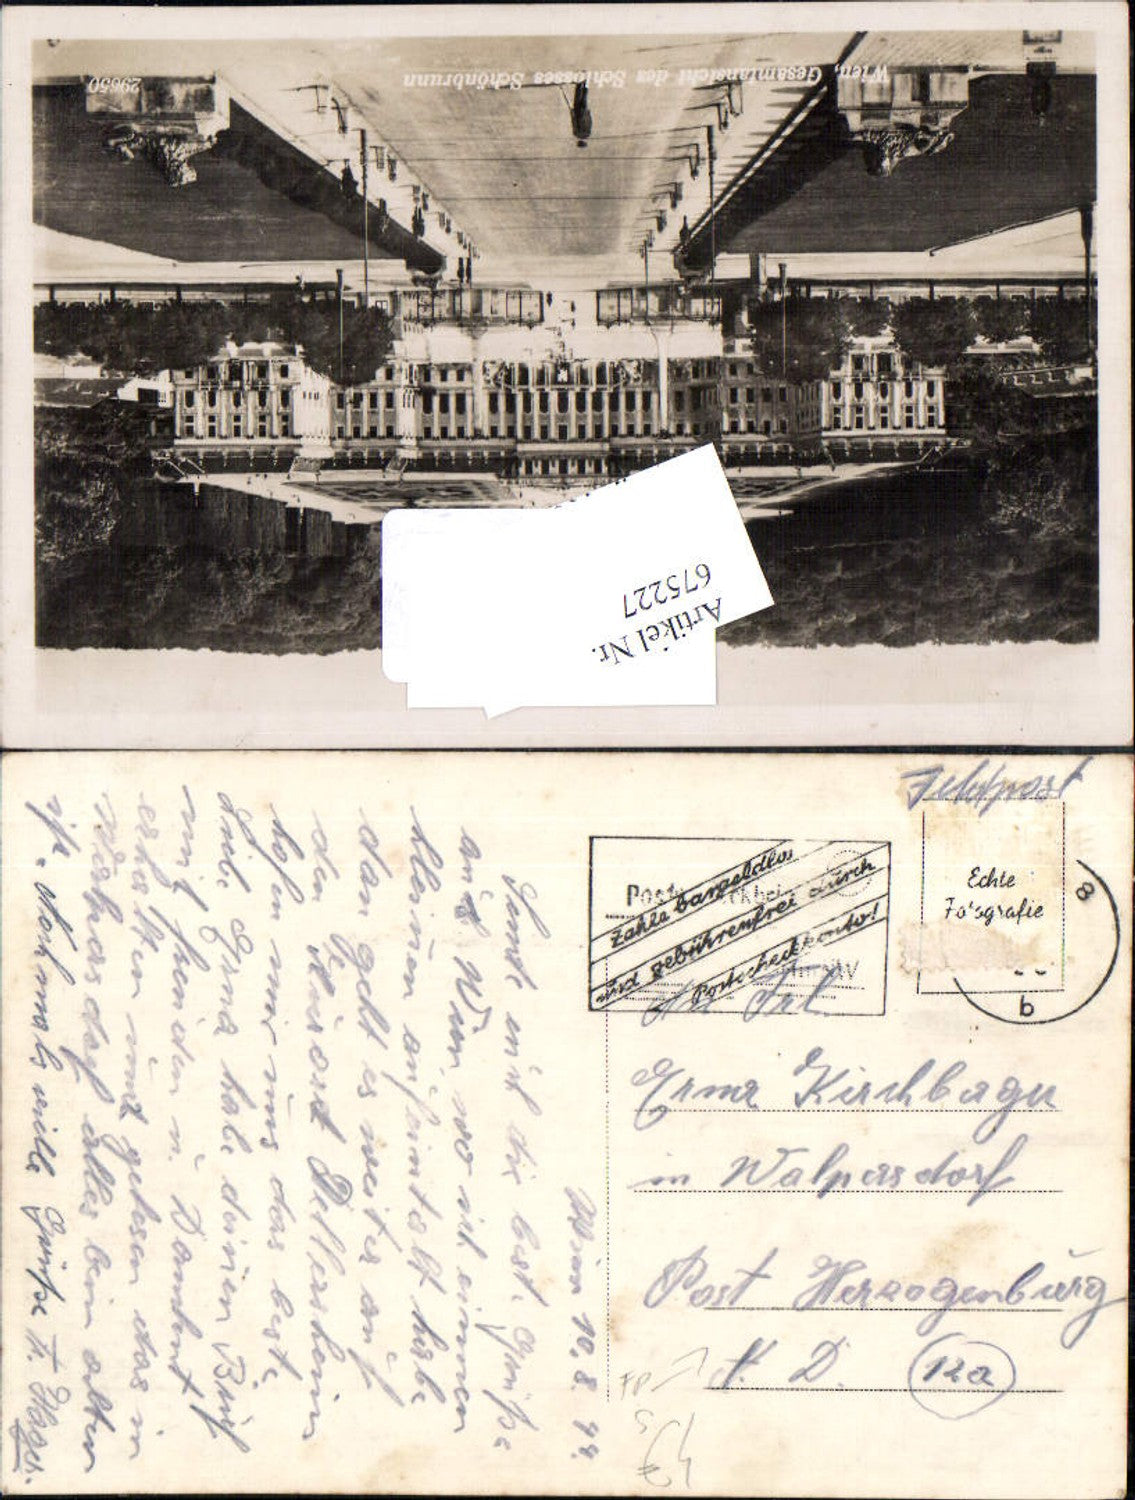 Wien, Gesamtansicht des Schlosses Schönbrunn
29650
Artikel Nr.
675227
Feldpost
Echte
Fotografie
Zahle bargeldlos
und gebührenfrei durch
Postscheckkonto!
8
b
An Frl.
Erma Kirchbager
in Walpersdorf
Post Herzogenburg
N. D. 12a
Wien 10. 8. 44.
Sende mit die best. Grüße
aus Wien, wo ich einen
kleinen aufentolt habe
dan gelt es weiter auf
den
hofen wir uns das beste
Liebe Erma habe deinen Brief
mit freuden u. Dankent
erholten und gelesen das in
das alles beim alten
ist. Nochmals viele Grüße
FP